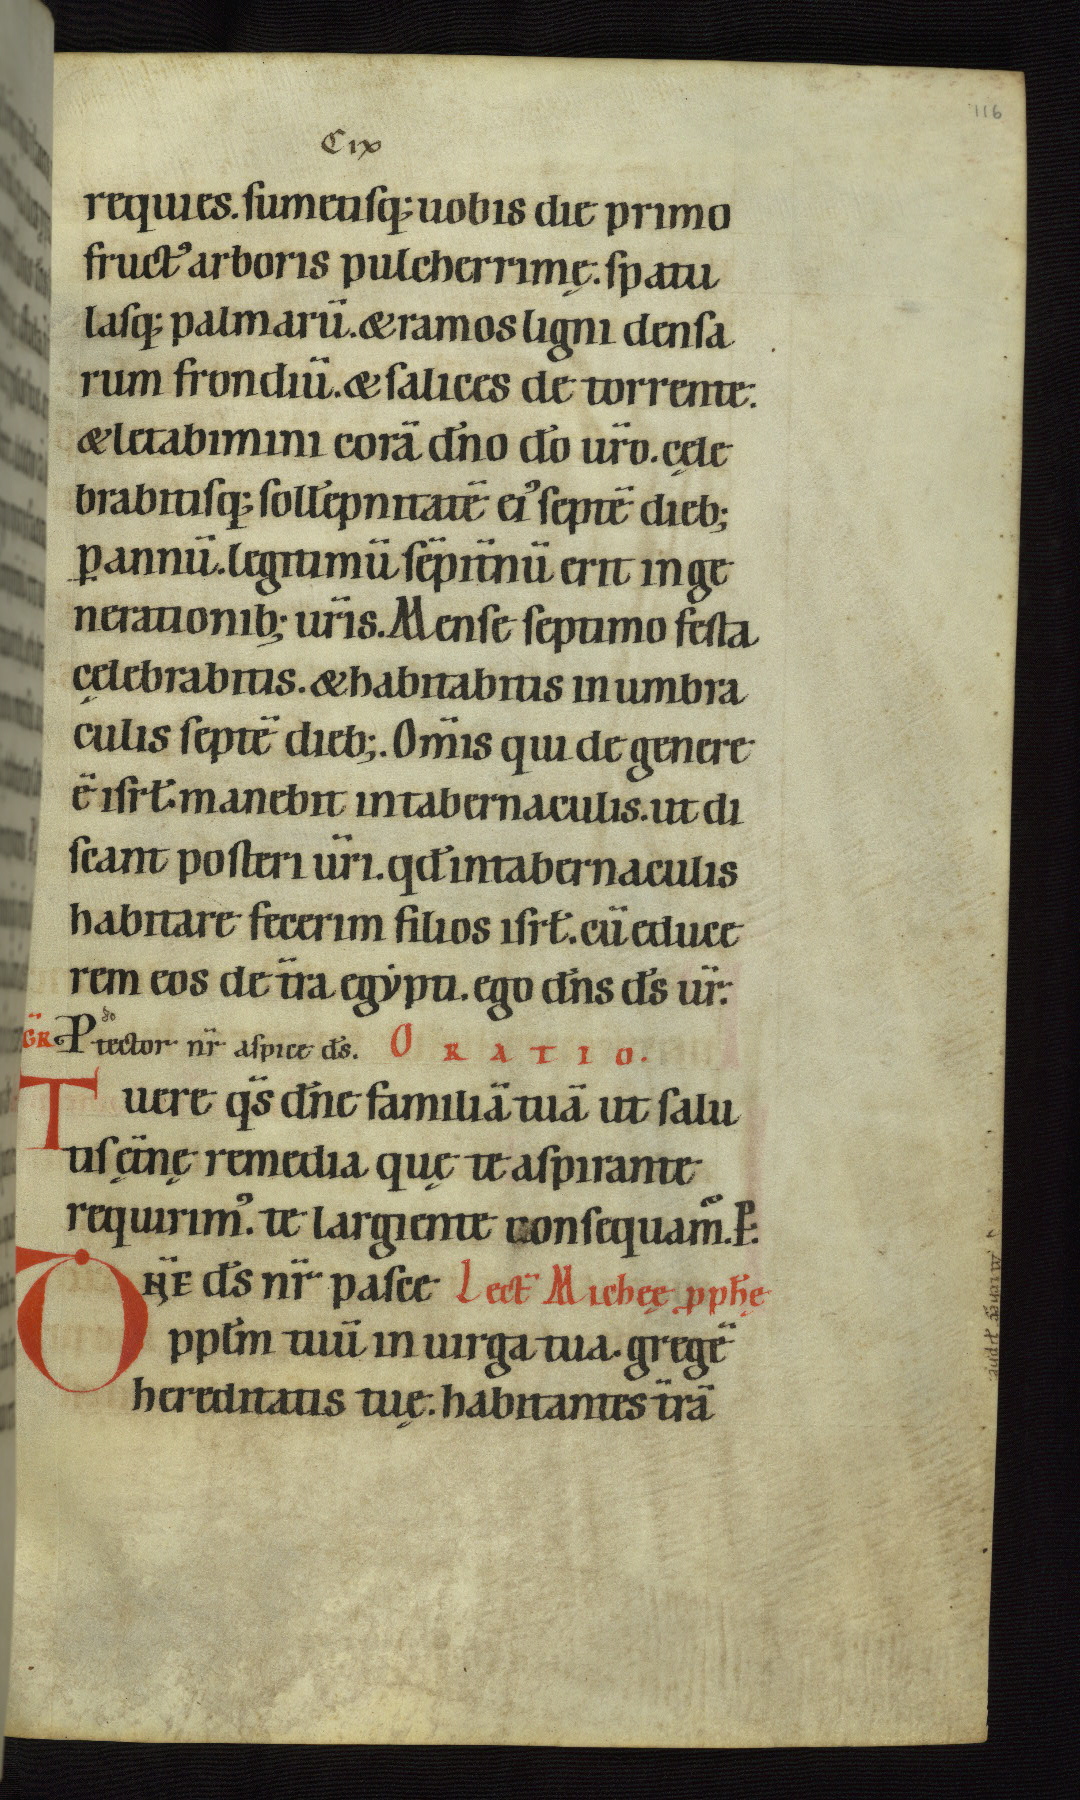 116
Cix
requies. sumetisq; uobis die primo
fruct᾿ arboris pulcherrimę. spatu
lasq; palmarū. & ramos ligni densa
rum frondiū. & salices de torrente.
& letabimini corā dn̄o dō ur̄o. cele
brabitisq; sollēpnitatē ei᾿ septē dieb;
ꝑ annū. legitimū sēpit̄nū erit in ge
nerationib; ur̄is. Mense septimo festa
celebrabitis. & habitabitis in umbra
culis septē dieb;. Om̄is qui de genere
ē isrł. manebit in tabernaculis. ut di
scant posteri ūri. qđ in tabernaculis
habitare fecerim filios isrł. cū educe
rem eos de t̄ra egẏpti. ego dn̄s ds̄ ur̄.
GR̄ Ptector nr̄ aspice ds̄. ORATIO.
Tuere qs̄ dn̄e familiā tuā ut salu
tis ęt̄nę remedia quę te aspirante
requirim᾿. te largiente consequam̄. P.
DN̄E ds̄ nr̄ pasce Lect̄ Micheę pph̄e
pplm̄ tuū in uirga tua. gregē
hereditatis tuę. habitantes t̄rā